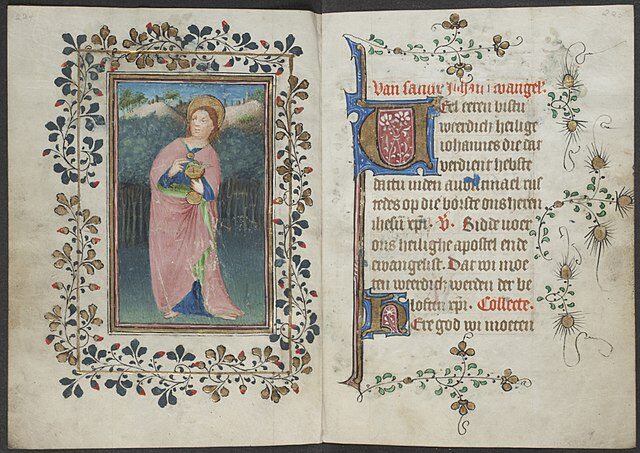 Van sancte Johan ewangel'.
Veel eeren bistu
weerdich heilige
iohannes die dat
verdient hebste
dattu inden auontmael rus
tedes op die borste ons heren
ihesu xpi. V. Bidde voer
ons heilighe apostel ende
ewangelist. Dat wi moe
ten weerdich werden der be
loften xpi. Collecte.
Here god wi moeten